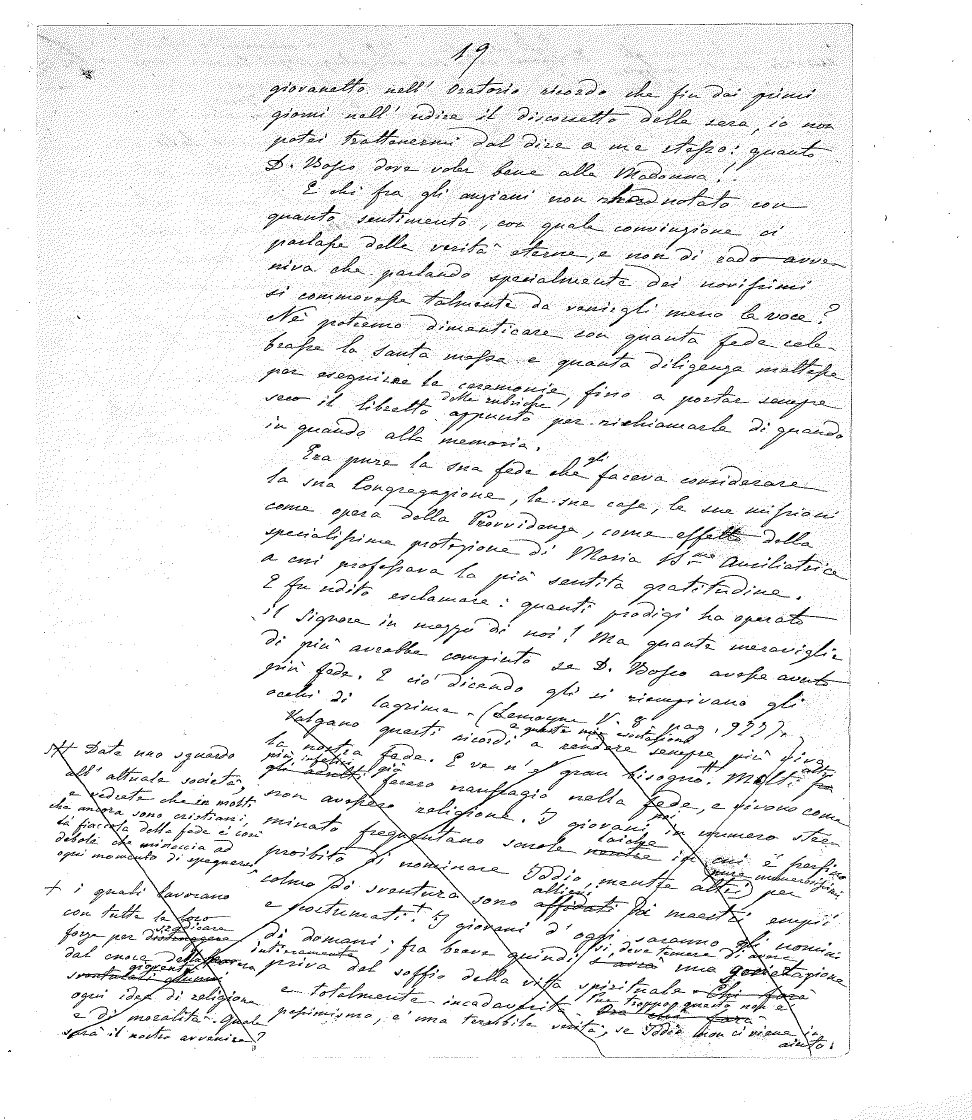 19
giovanetto nell' Oratorio ricordo che fin dai primi
giorni nell' udire il discorsetto della sera, io non
potei trattenermi dal dire a me stesso: quanto
D. Bosco deve voler bene alla Madonna!
E chi fra gli anziani non ha notato con
quanto sentimento, con quale convinzione ci
parlasse delle verità eterne, e non di rado avve-
niva che parlando specialmente dei novissimi
si commovesse talmente da venirgli meno la voce?
Nè potremo dimenticare con quanta fede cele-
brasse la santa messa e quanta diligenza mettesse
per eseguirne le ceremonie, fino a portar sempre
seco il libretto delle rubriche appunto per richiamarle di quando
in quando alla memoria.
Era pure la sua fede che gli faceva considerare
la sua Congregazione, le sue case, le sue missioni
come opera della Provvidenza, come effetto della
specialissima protezione di Maria SS.ma Ausiliatrice
a cui professava la più sentita gratitudine.
E fu udito esclamare: quanti prodigi ha operato
il Signore in mezzo di noi! Ma quante meraviglie
di più avrebbe compiuto se D. Bosco avesse avuto
più fede. E ciò dicendo gli si riempivano gli
occhi di lagrime - (Lemoyne V. 8 pag. 977).
Valgano questi ricordi a rendere sempre più viva
la nostra fede. E ve n'è gran bisogno. Molti
gli adulti già fecero naufragio nella fede, e vivono come
non avessero religione. I giovani poi in numero ster-
minato frequentano scuole laiche in cui è perfino
proibito di nominare Iddio, mentre altri pure numerosissimi per
colmo di sventura sono allievi affidati di maestri empii
e scostumati. + I giovani d'oggi saranno gli uomini
di domani; fra breve quindi si deve temere di avere s'avrà una generazione
interamente priva del soffio della vita spirituale
e totalmente incadaverita. pur troppo quanto non è
pessimismo, è una terribile verità, se Iddio non ci viene in
aiuto.
Date uno sguardo
all' attuale società,
e vedrete che in molti,
che ancora sono cristiani,
la fiaccola della fede è così
debole che minaccia ad
ogni momento di spegnersi
+ i quali lavorano
con tutte le loro
forze per sradicare
dal cuore della
gioventù
ogni idea di religione
e di moralità. Quale
sarà il nostro avvenire?